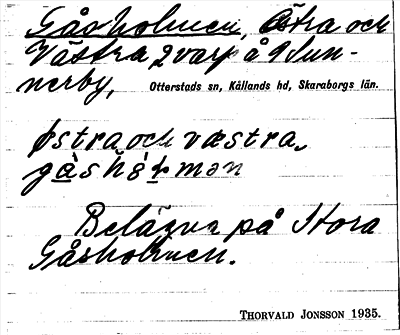 Gåsholmen, Östra och
Västra, 2 varp å Sun-
nerby, Otterstads sn, Kållands hd, Skaraborgs län.
østra och væstra,
Belägna på Stora
Gåsholmen.
THORVALD JONSSON 1935.